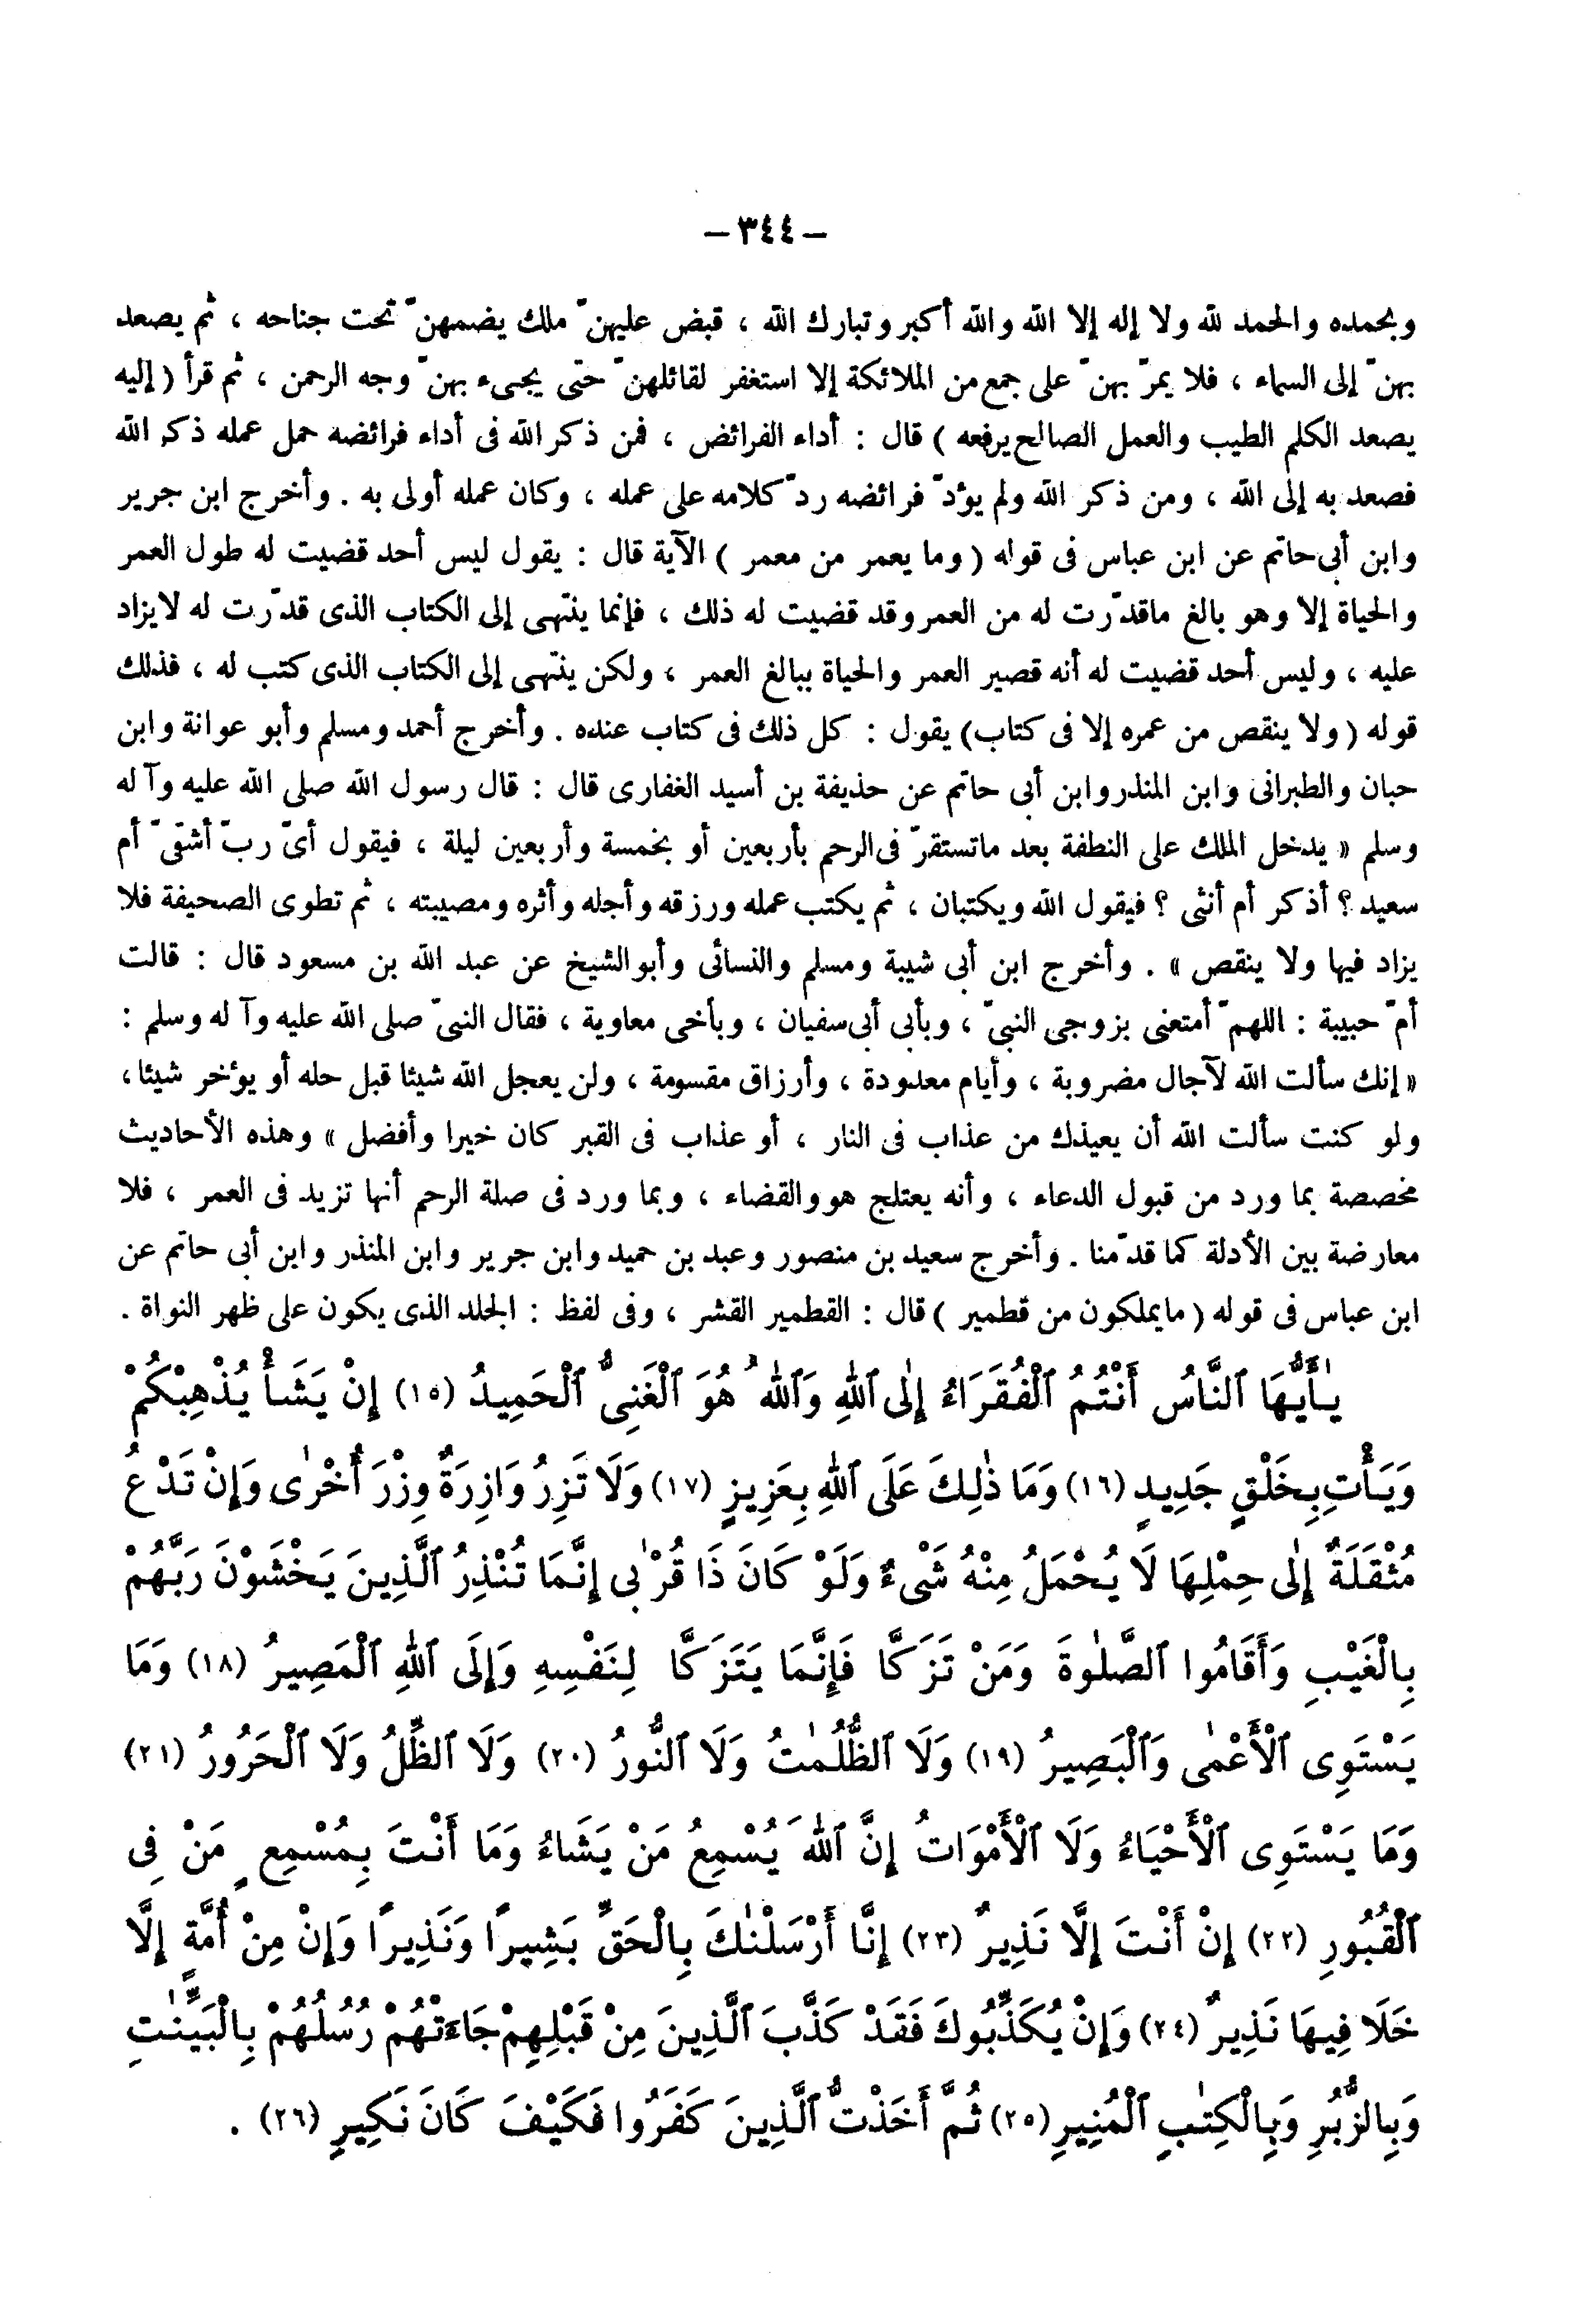 — ٣٤٤ —
وبحمده والحمد لله ولا إله إلا الله والله أكبر وتبارك الله ، قبض عليهنّ ملك يضمهنّ تحت جناحه ، ثم يصعد
بهنّ إلى السماء ، فلا يمرّ بهنّ على جمع من الملائكة إلا استغفر لقائلهنّ حتى يجىء بهنّ وجه الرحمن ، ثم قرأ ( إليه
يصعد الكلم الطيب والعمل الصالح يرفعه ) قال : أداء الفرائض ، فمن ذكر الله فى أداء فرائضه حمل عمله ذكر الله
فصعد به إلى الله ، ومن ذكر الله ولم يؤدّ فرائضه ردّ كلامه على عمله ، وكان عمله أولى به . وأخرج ابن جرير
وابن أبى حاتم عن ابن عباس فى قوله ( وما يعمر من معمر ) الآية قال : يقول ليس أحد قضيت له طول العمر
والحياة إلا وهو بالغ ماقدّرت له من العمر وقد قضيت له ذلك ، فإنما ينتهى إلى الكتاب الذى قدّرت له لايزاد
عليه ، وليس أحد قضيت له أنه قصير العمر والحياة ببالغ العمر ، ولكن ينتهى إلى الكتاب الذى كتب له ، فذلك
قوله ( ولا ينقص من عمره إلا فى كتاب ) يقول : كل ذلك فى كتاب عنده . وأخرج أحمد ومسلم وأبو عوانة وابن
حبان والطبرانى وابن المنذر وابن أبى حاتم عن حذيفة بن أسيد الغفارى قال : قال رسول الله صلى الله عليه وآله
وسلم « يدخل الملك على النطفة بعد ماتستقرّ فى الرحم بأربعين أو بخمسة وأربعين ليلة ، فيقول أىّ ربّ أشقىّ أم
سعيد ؟ أذكر أم أنثى ؟ فيقول الله ويكتبان ، ثم يكتب عمله ورزقه وأجله وأثره ومصيبته ، ثم تطوى الصحيفة فلا
يزاد فيها ولا ينقص » . وأخرج ابن أبى شيبة ومسلم والنسائى وأبو الشيخ عن عبد الله بن مسعود قال : قالت
أمّ حبيبة : اللهمّ أمتعنى بزوجى النبىّ ، وبأبى أبى سفيان ، وبأخى معاوية ، فقال النبىّ صلى الله عليه وآله وسلم :
« إنك سألت الله لآجال مضروبة ، وأيام معدودة ، وأرزاق مقسومة ، ولن يعجل الله شيئا قبل حله أو يؤخر شيئا ،
ولو كنت سألت الله أن يعيذك من عذاب فى النار ، أو عذاب فى القبر كان خيرا وأفضل » وهذه الأحاديث
مخصصة بما ورد من قبول الدعاء ، وأنه يعتلج هو والقضاء ، وبما ورد فى صلة الرحم أنها تزيد فى العمر ، فلا
معارضة بين الأدلة كما قدّمنا . وأخرج سعيد بن منصور وعبد بن حميد وابن جرير وابن المنذر وابن أبى حاتم عن
ابن عباس فى قوله ( مايملكون من قطمير ) قال : القطمير القشر ، وفى لفظ : الجلد الذى يكون على ظهر النواة .
يٰأَيُّهَا ٱلنَّاسُ أَنْتُمُ ٱلْفُقَرَاءُ إِلَى ٱللهِ وَٱللهُ هُوَ ٱلْغَنِىُّ ٱلْحَمِيدُ (١٥) إِنْ يَشَأْ يُذْهِبْكُمْ
وَيَأْتِ بِخَلْقٍ جَدِيدٍ (١٦) وَمَا ذٰلِكَ عَلَى ٱللهِ بِعَزِيزٍ (١٧) وَلَا تَزِرُ وَازِرَةٌ وِزْرَ أُخْرٰى وَإِنْ تَدْعُ
مُثْقَلَةٌ إِلٰى حِمْلِهَا لَا يُحْمَلُ مِنْهُ شَىْءٌ وَلَوْ كَانَ ذَا قُرْبٰى إِنَّمَا تُنْذِرُ ٱلَّذِينَ يَخْشَوْنَ رَبَّهُمْ
بِالْغَيْبِ وَأَقَامُوا ٱلصَّلٰوةَ وَمَنْ تَزَكَّا فَإِنَّمَا يَتَزَكَّا لِنَفْسِهِ وَإِلَى ٱللهِ ٱلْمَصِيرُ (١٨) وَمَا
يَسْتَوِى ٱلْأَعْمٰى وَٱلْبَصِيرُ (١٩) وَلَا ٱلظُّلُمٰتُ وَلَا ٱلنُّورُ (٢٠) وَلَا ٱلظِّلُ وَلَا ٱلْحَرُورُ (٢١)
وَمَا يَسْتَوِى ٱلْأَحْيَاءُ وَلَا ٱلْأَمْوَاتُ إِنَّ ٱللهَ يُسْمِعُ مَنْ يَشَاءُ وَمَا أَنْتَ بِمُسْمِعٍ مَنْ فِى
ٱلْقُبُورِ (٢٢) إِنْ أَنْتَ إِلَّا نَذِيرٌ (٢٣) إِنَّا أَرْسَلْنٰكَ بِالْحَقِّ بَشِيرًا وَنَذِيرًا وَإِنْ مِنْ أُمَّةٍ إِلَّا
خَلَا فِيهَا نَذِيرٌ (٢٤) وَإِنْ يُكَذِّبُوكَ فَقَدْ كَذَّبَ ٱلَّذِينَ مِنْ قَبْلِهِمْ جَاءَتْهُمْ رُسُلُهُمْ بِالْبَيِّنٰتِ
وَبِالزُّبُرِ وَبِالْكِتٰبِ ٱلْمُنِيرِ (٢٥) ثُمَّ أَخَذْتُ ٱلَّذِينَ كَفَرُوا فَكَيْفَ كَانَ نَكِيرِ (٢٦) .